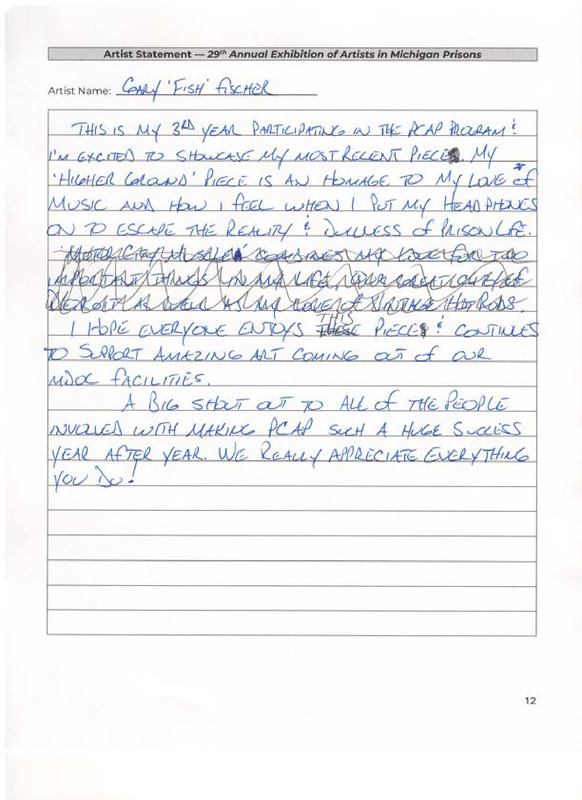 Artist Statement — 29th Annual Exhibition of Artists in Michigan Prisons
Artist Name: GARY 'FISH' FISCHER
THIS IS MY 3RD YEAR PARTICIPATING IN THE PCAP PROGRAM &
I'M EXCITED TO SHOWCASE MY MOST RECENT PIECE. MY
'HIGHER GROUND' PIECE IS AN HOMAGE TO MY LOVE OF
MUSIC AND HOW I FEEL WHEN I PUT MY HEADPHONES
ON TO ESCAPE THE REALITY & DULLNESS OF PRISON LIFE.
'MOTOR CITY MUSCLE' COMBINES MY LOVE FOR TWO
IMPORTANT THINGS IN MY LIFE, OUR GREAT CITY OF
DETROIT AS WELL AS MY LOVE OF VINTAGE HOT RODS.
I HOPE EVERYONE ENJOYS THESE THIS PIECE & CONTINUES
TO SUPPORT AMAZING ART COMING OUT OF OUR
MDOC FACILITIES.
A BIG SHOUT OUT TO ALL OF THE PEOPLE
INVOLVED WITH MAKING PCAP SUCH A HUGE SUCCESS
YEAR AFTER YEAR. WE REALLY APPRECIATE EVERYTHING
YOU DO!
12